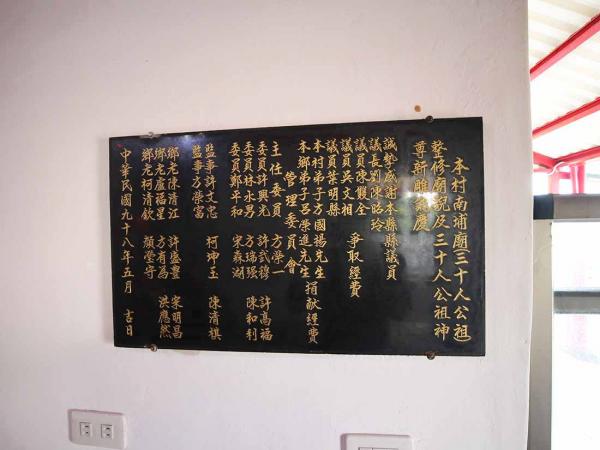 本村南埔廟三十人公祖
整修廟貌及三十人公祖神
尊新雕為慶
誠摯感謝本縣縣議員
議長劉陳昭玲
議員陳雙全
議員吳文相 爭取經費
議員葉明縣
本村弟子方國揚先生
本鄉弟子呂榮進先生 捐献經費
管理委員會
主任委員 方學一
委員許興光 許武穆 許高福
委員林水男 方瑞强 陳和利
委員鄭平和 宋森湖
監事許文忠 柯坤玉 陳清棋
監事方榮富
鄉老陳清江 許盛豐 宋明昌
鄉老盧福星 方有為 洪應然
鄉老柯清欽 顏堂守
中華民國九十八年五月 吉日